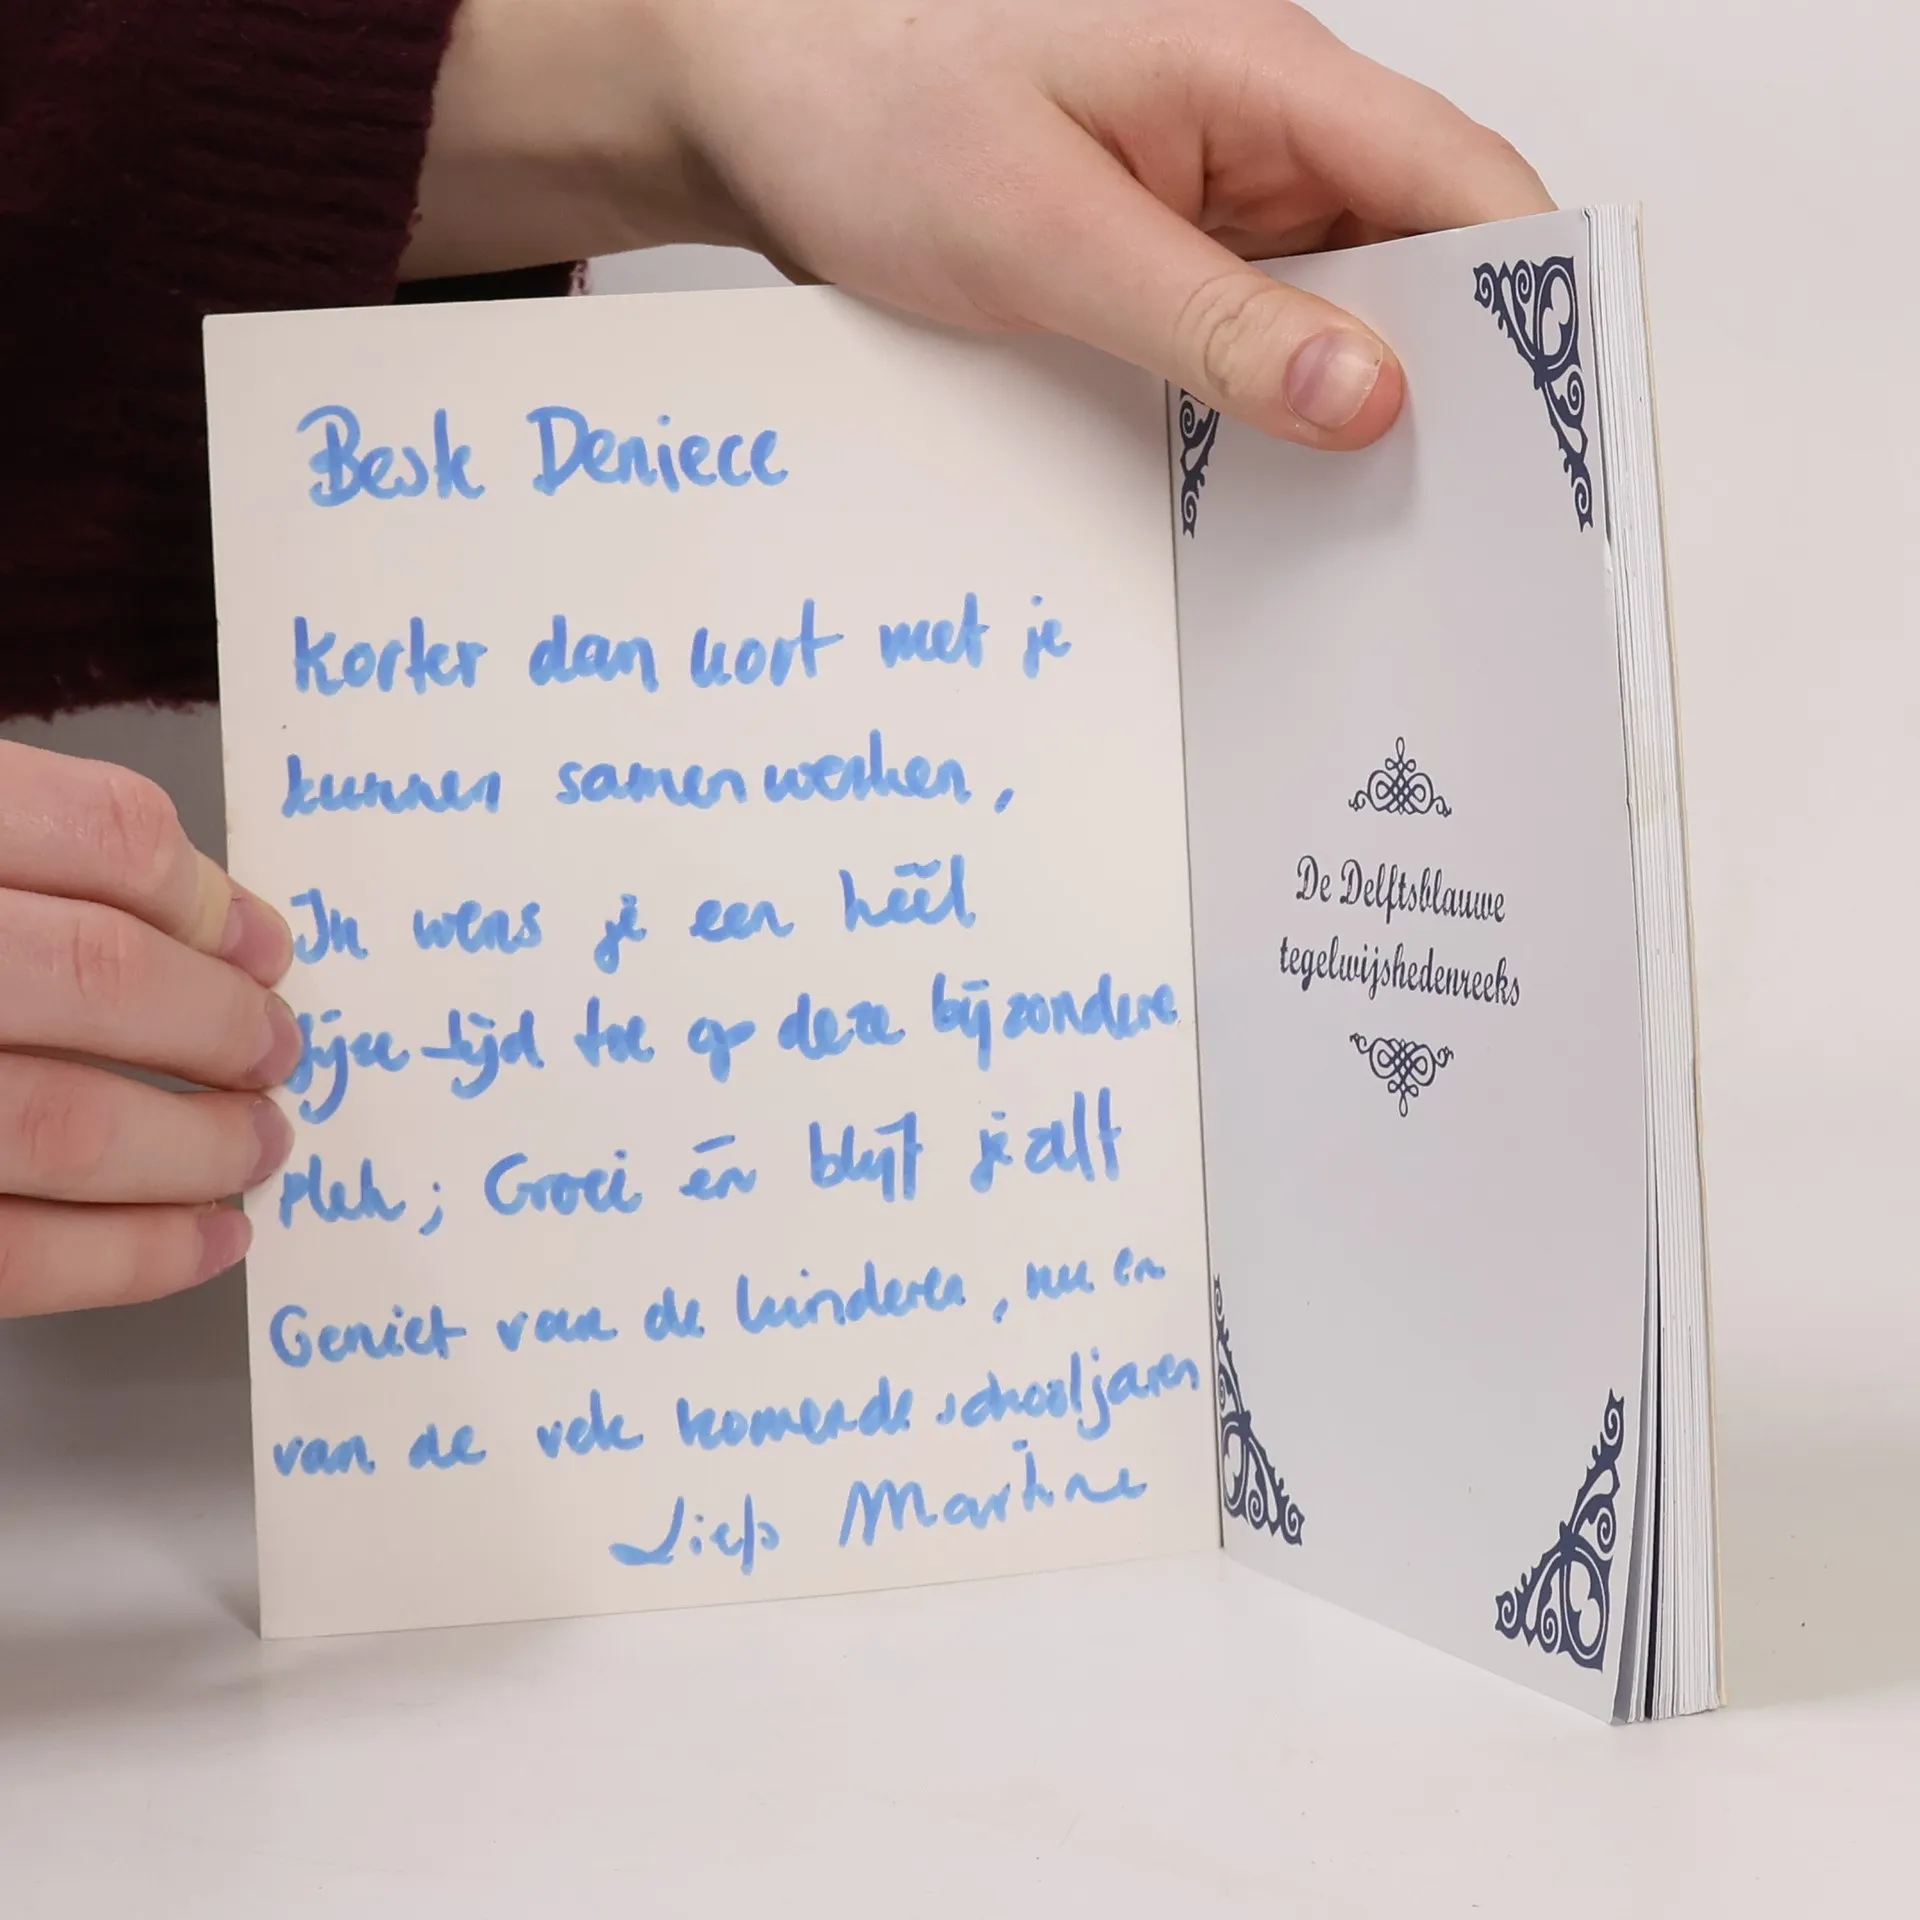 Beste Deniece
Korter dan kort met je
kunnen samenwerken,
Ik wens je een héél
fijne tijd toe op deze bijzondere
plek; Groei én blijf jezelf
Geniet van de kinderen, nu en
van de vele komende schooljaren
Liefs Martine
De Delftsblauwe
tegelwijshedenreeks